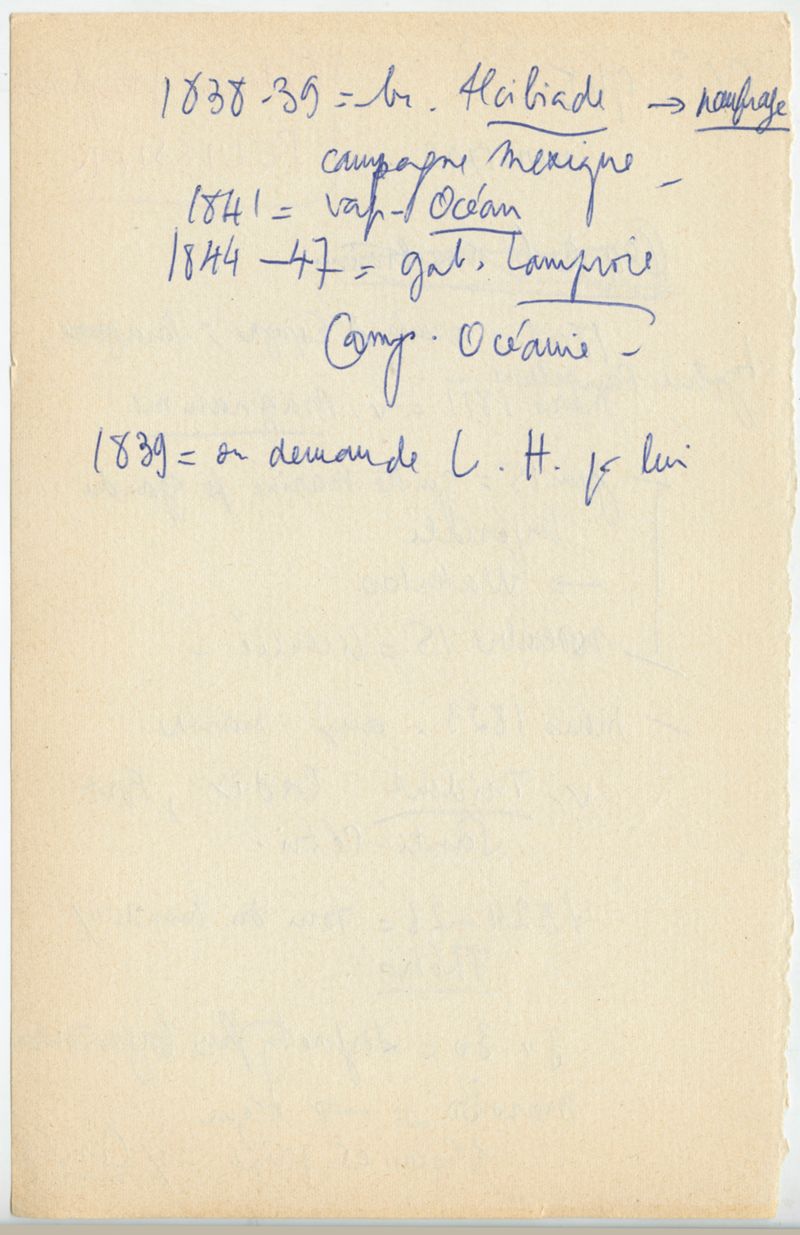 1838-39 = br. Alcibiade → naufrage
campagne Mexique –
1841 = vap. Océan
1844 – 47 = gab. Lamproie
Camp. Océanie –
1839 = on demande L. H. pr lui